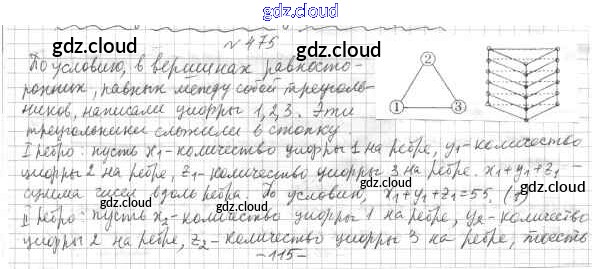 gdz.cloud
gdz.cloud
gdz.cloud
№ 475
По условию, в вершинах равносто-
ронних, равных между собой треуголь-
ников, написали цифры 1, 2, 3. Эти
треугольники сложили в стопку.
2
1
3
I ребро: пусть x1 - количество цифры 1 на ребре, y1 - количество
цифры 2 на ребре, z1 - количество цифры 3 на ребре. x1+y1+z1 -
gdz.cloud
gdz.cloud
сумма чисел вдоль ребра. По условию, x1+y1+z1=55. (1)
II ребро: пусть x2 - количество цифры 1 на ребре, y2 - количество
цифры 2 на ребре, z2 - количество цифры 3 на ребре, то есть
-115-
gdz.cloud
gdz.cloud